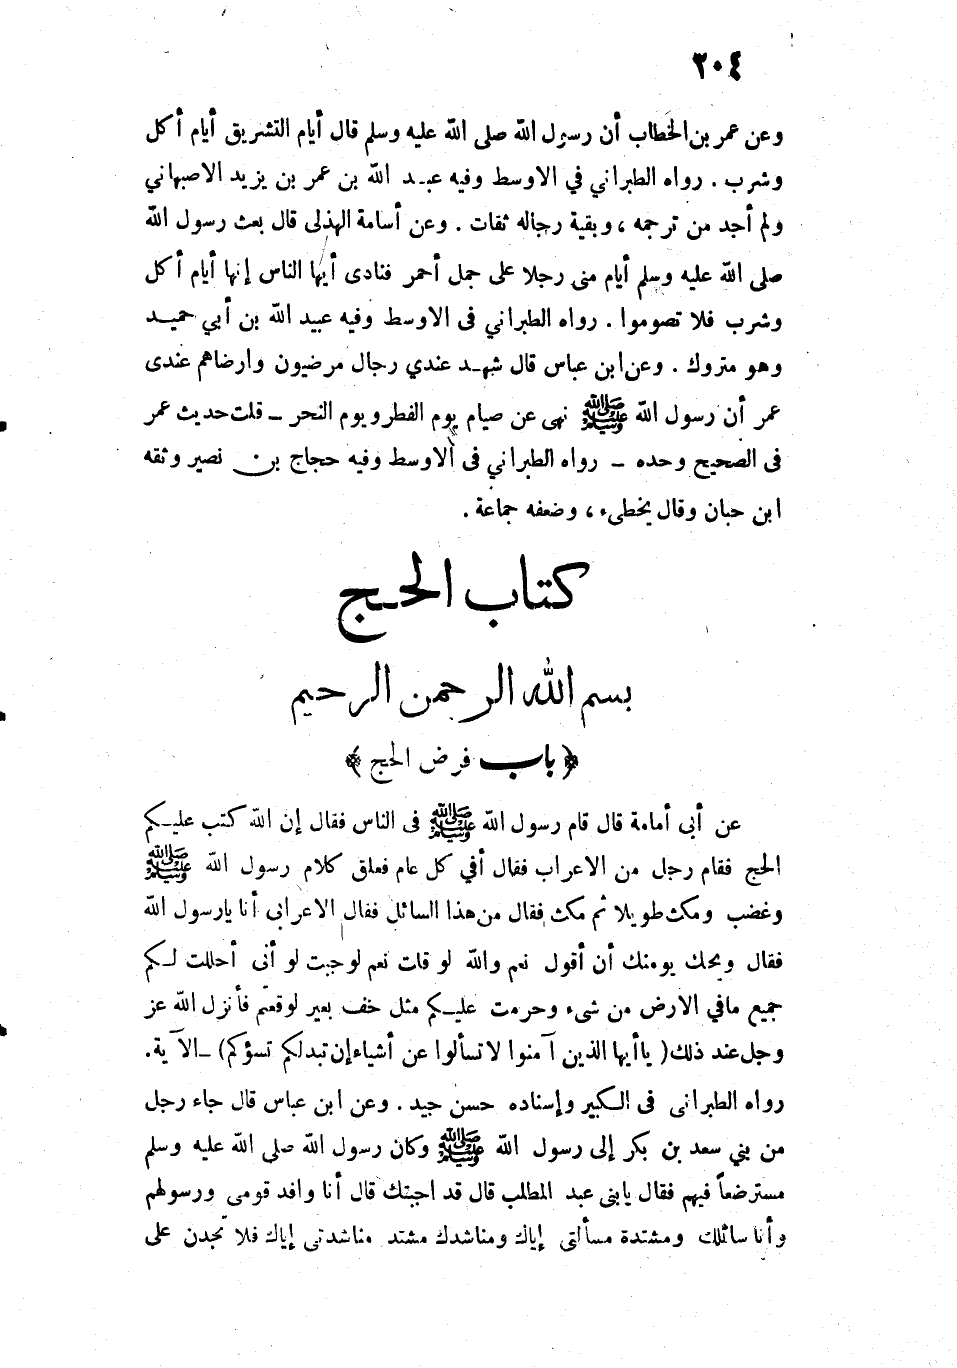 ٢٠٤
وعن عمر بن الخطاب أن رسول الله صلى الله عليه وسلم قال أيام التشريق أيام أكل
وشرب . رواه الطبراني في الاوسط وفيه عبد الله بن عمر بن يزيد الاصبهاني
ولم أجد من ترجمه ، وبقية رجاله ثقات . وعن أسامة الهذلى قال بعث رسول الله
صلى الله عليه وسلم أيام منى رجلا على جمل أحمر فنادى أيها الناس إنها أيام أكل
وشرب فلا تصوموا . رواه الطبراني فى الاوسط وفيه عبيد الله بن أبي حميد
وهو متروك . وعن ابن عباس قال شهد عندي رجال مرضيون وارضاهم عندى
عمر أن رسول الله ﷺ نهى عن صيام يوم الفطر ويوم النحر ــ قلت حديث عمر
فى الصحيح وحده ــ رواه الطبراني فى الأوسط وفيه حجاج بن نصير وثقه
ابن حبان وقال يخطىء ، وضعفه جماعة .
كتاب الحج
بسم الله الرحمن الرحيم
﴿ باب فرض الحج ﴾
عن أبى أمامة قال قام رسول الله ﷺ فى الناس فقال إن الله كتب عليكم
الحج فقام رجل من الاعراب فقال أفي كل عام فعلق كلام رسول الله ﷺ
وغضب ومكث طويلا ثم مكث فقال من هذا السائل فقال الاعرابى أنا يارسول الله
فقال ويحك يومنك أن أقول نعم والله لو قلت نعم لوجبت لو أنى أحللت لكم
جميع مافي الارض من شىء وحرمت عليكم مثل خف بعير لوقعتم فأنزل الله عز
وجل عند ذلك ( ياأيها الذين آمنوا لا تسألوا عن أشياء إن تبدلكم تسؤكم) ــ الآية.
رواه الطبرانى فى الكبير وإسناده حسن جيد . وعن ابن عباس قال جاء رجل
من بني سعد بن بكر إلى رسول الله ﷺ وكان رسول الله صلى الله عليه وسلم
مسترضعاً فيهم فقال يابنى عبد المطلب قال قد اجبتك قال أنا وافد قومى ورسولهم
وأنا سائلك ومشتدة مسألتى إياك ومناشدك مشتد مناشدتى إياك فلا تجدن على